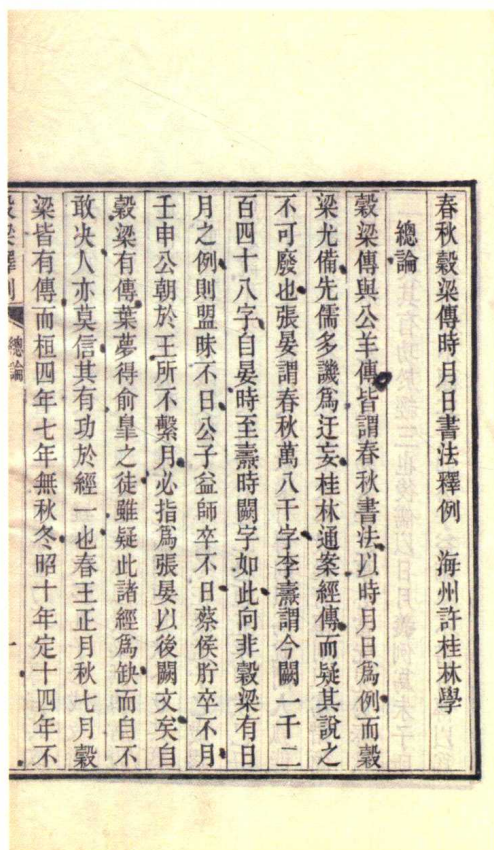 春秋穀梁傳時月日書法釋例　海州許桂林學
總論
穀梁傳與公羊傳皆謂春秋書法以時月日爲例而穀
梁尤備先儒多譏爲迂妄桂林通案經傳而疑其說之
不可廢也張晏謂春秋萬八千字李燾謂今闕一千二
百四十八字自晏時至燾時闕字如此向非穀梁有日
月之例則盟昧不日公子益師卒不日蔡侯肸卒不月
壬申公朝於王所不繫月必指爲張晏以後闕文矣自
穀梁有傳葉夢得俞臯之徒雖疑此諸經爲缺而自不
敢決人亦莫信其有功於經一也春王正月秋七月穀
梁皆有傳而桓四年七年無秋冬昭十年定十四年不
總論